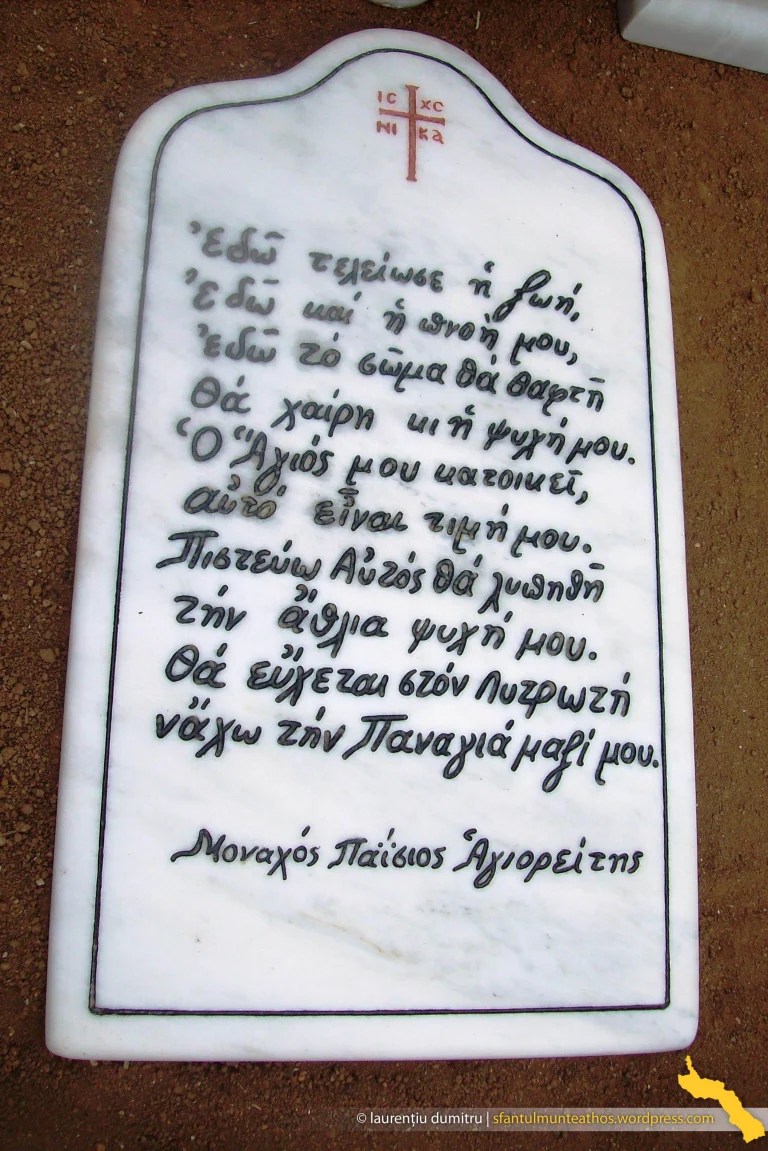 ΙC ΧC
ΝΙ Κα
Ἐδῶ τελείωσε ἡ ζωή,
Ἐδῶ καί ἡ πνοή μου,
ἐδῶ τό σῶμα θά θαφτῆ
θά χαίρη κι ἡ ψυχή μου.
Ὁ Ἅγιός μου κατοικεῖ,
αὐτό εἶναι τιμή μου.
Πιστεύω Αὐτός θά λυπηθῆ
τήν ἄθλια ψυχή μου.
Θά εὔχεται στόν Λυτρωτή
νἄχω τήν Παναγιά μαζί μου.
Μοναχός Παΐσιος Ἁγιορείτης
© laurențiu dumitru | sfantulmunteathos.wordpress.com